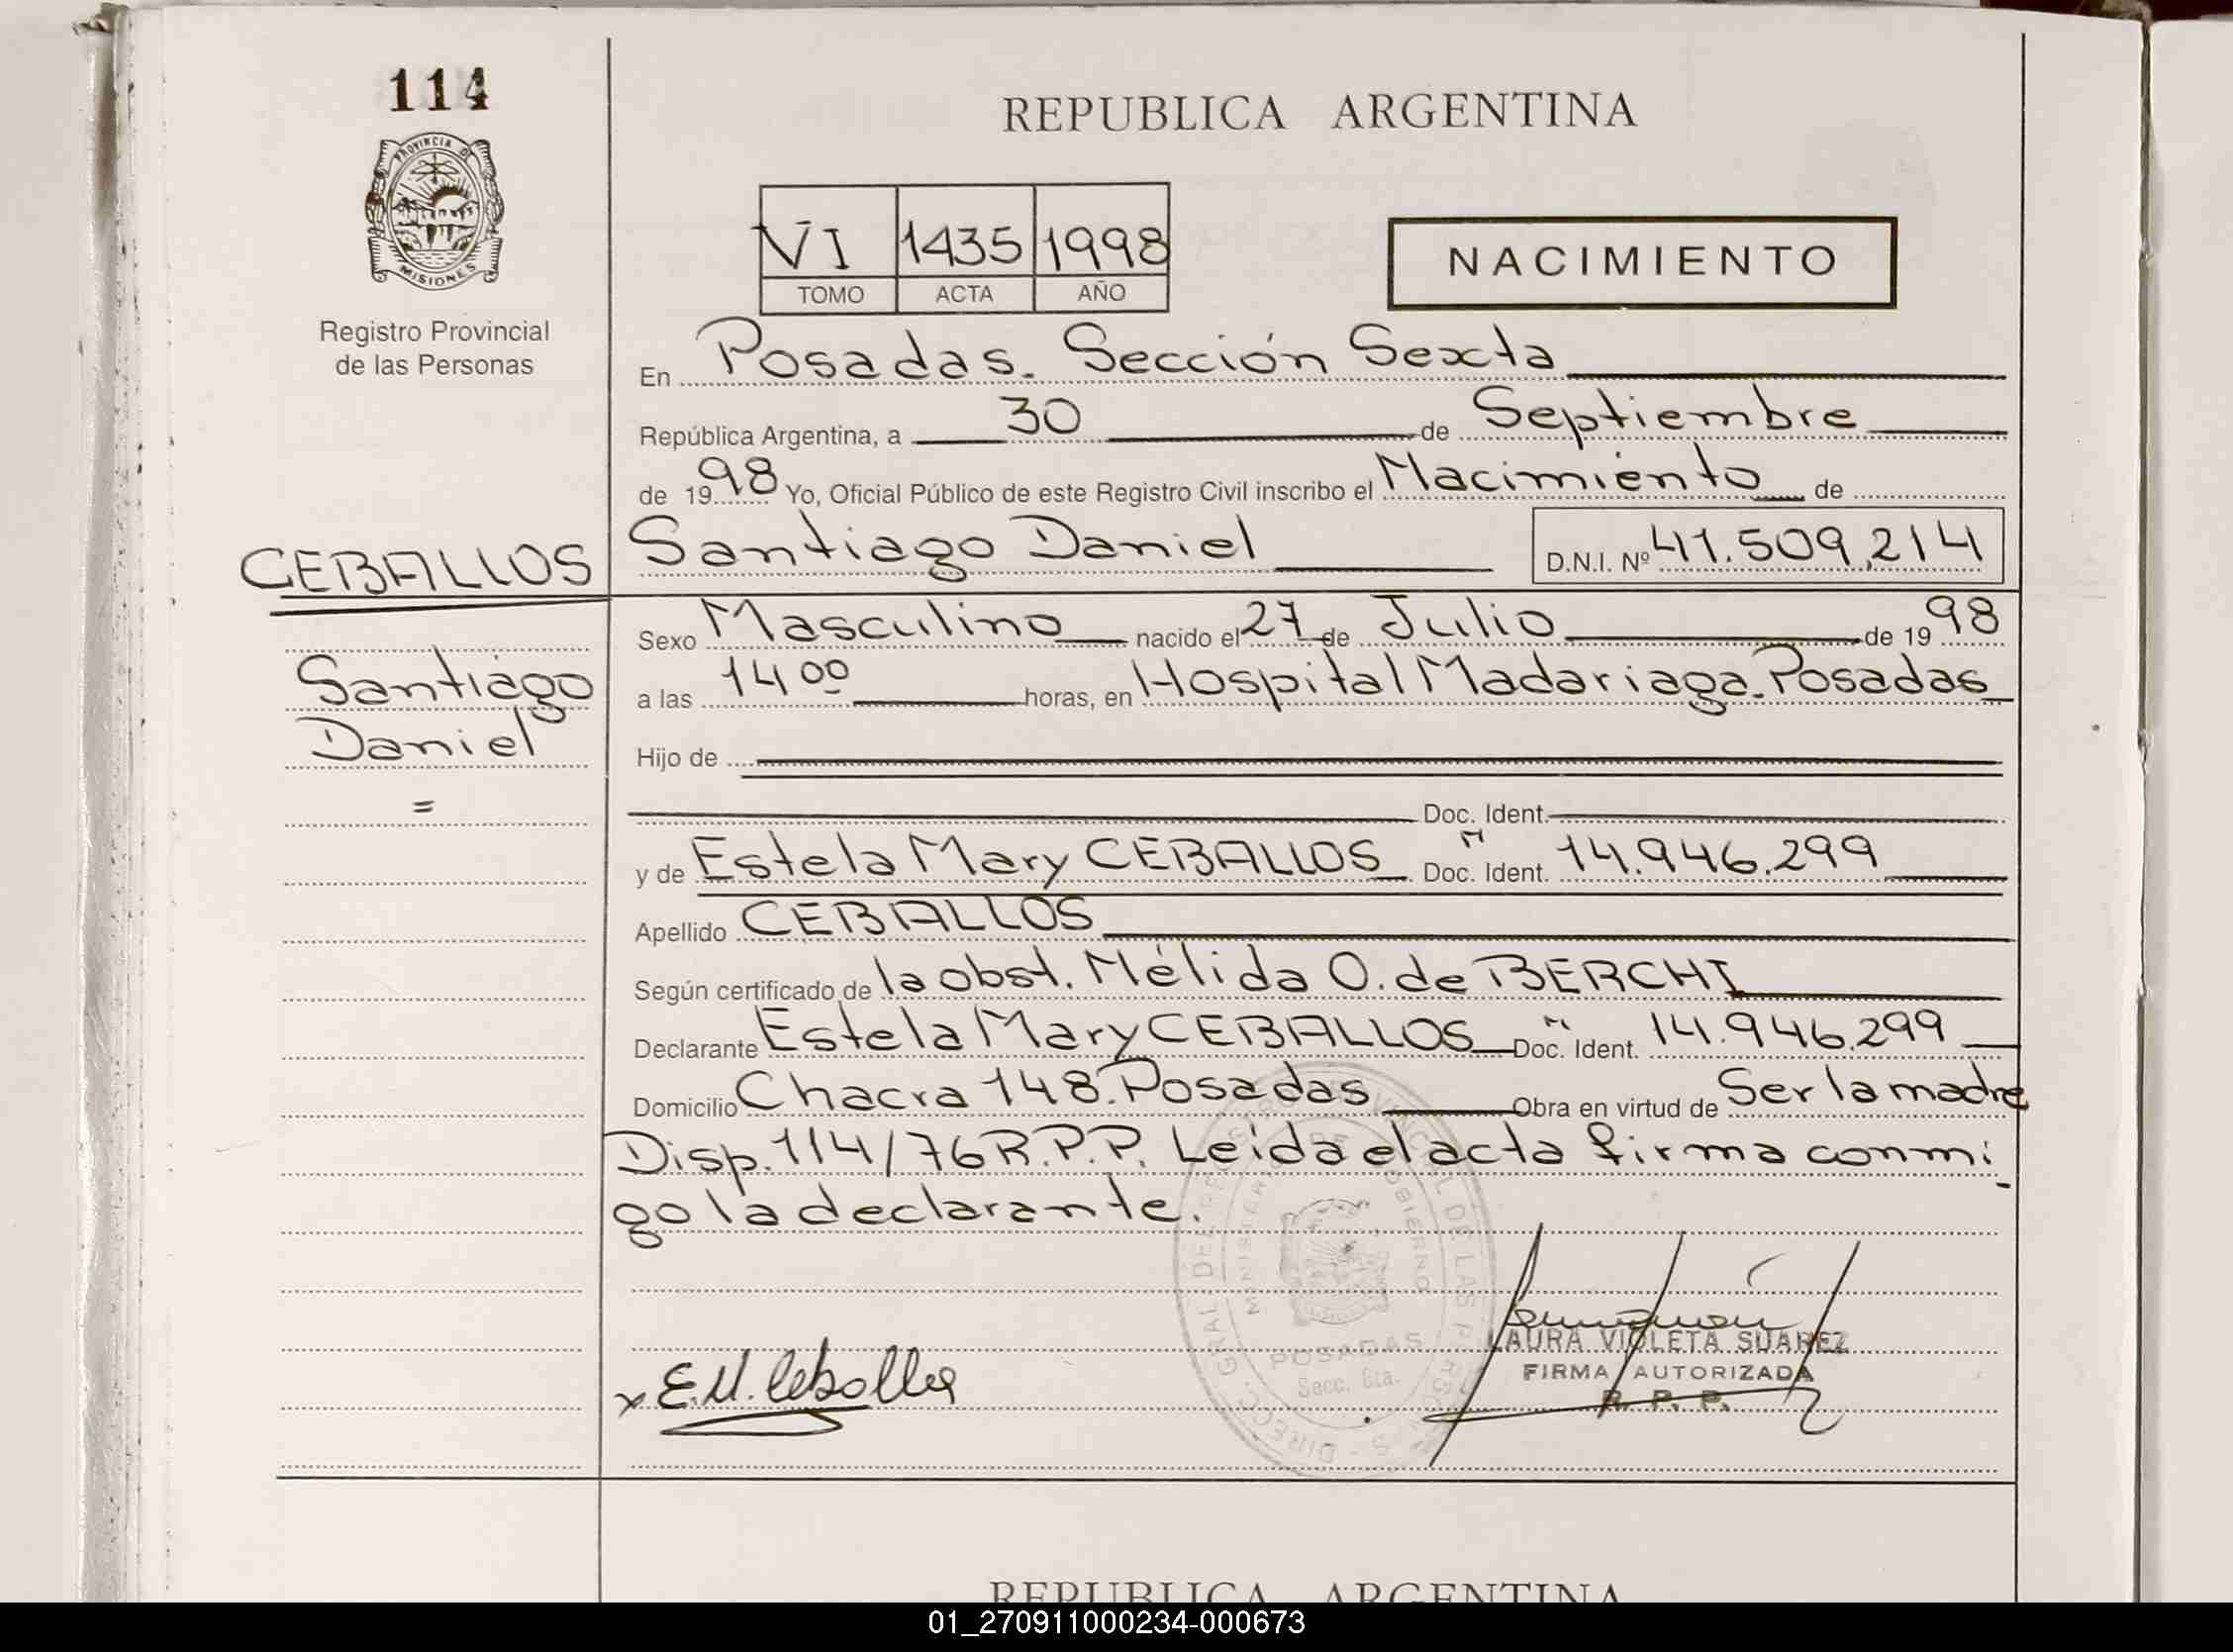 114
PROVINCIA DE
MISIONES
Registro Provincial
de las Personas
REPUBLICA ARGENTINA
VI 1435 1998
TOMO ACTA AÑO
NACIMIENTO
En Posadas. Sección Sexta
República Argentina, a 30 de Septiembre
de 1998 Yo, Oficial Público de este Registro Civil inscribo el Nacimiento de
CEBALLOS Santiago Daniel D.N.I. Nº 41.509,214
Sexo Masculino nacido el 27 de Julio de 1998
Santiago
Daniel
=
a las 14 00 horas, en Hospital Madariaga. Posadas
Hijo de
Doc. Ident.
y de Estela Mary CEBALLOS Doc. Ident. N 14.946.299
Apellido CEBALLOS
Según certificado de la obst. Nélida O. de BERCHI
Declarante Estela Mary CEBALLOS Doc. Ident. N 14.946.299
Domicilio Chacra 148. Posadas Obra en virtud de Ser la madre
Disp. 114/76 R.P.P. Leída el acta firma conmi
go la declarante.
DIRECC. GRAL. DEL REGISTRO PROVINCIAL DE LAS PERSONAS
MINISTERIO DE GOBIERNO
POSADAS
Secc. 6ta.
x E.M. Ceballos
LAURA VIOLETA SUAREZ
FIRMA AUTORIZADA
R. P. P.
REPUBLICA ARGENTINA
01_270911000234-000673